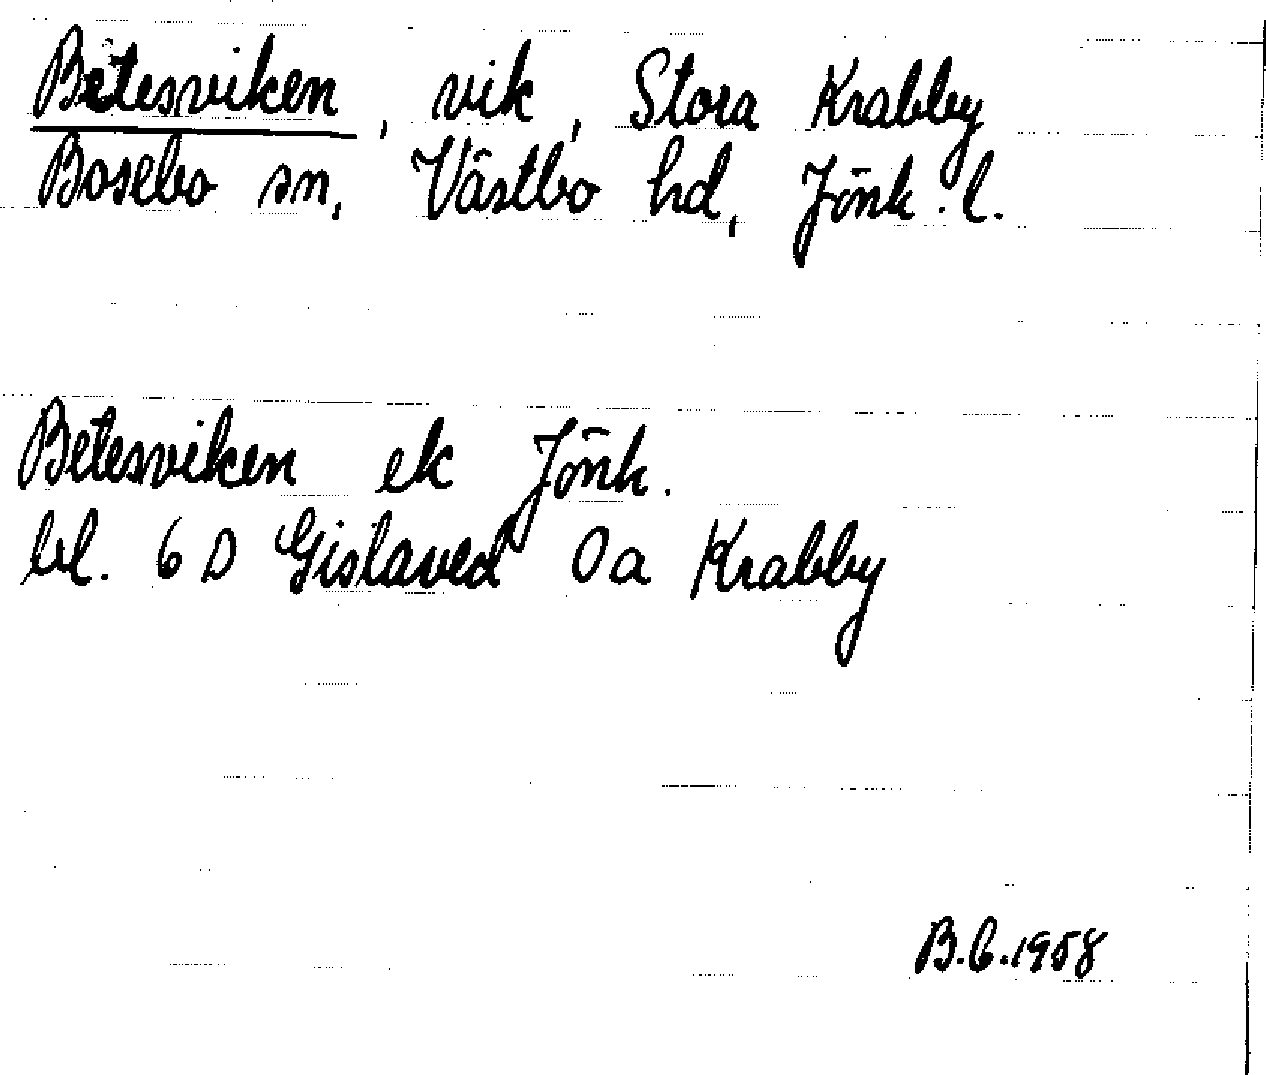 Betesviken, vik, Stora Krabby
Bosebo sn, Västbo hd, Jönk. l.
Betesviken ek Jönk.
bl. 6 D Gislaved 0a Krabby
B.G.1958